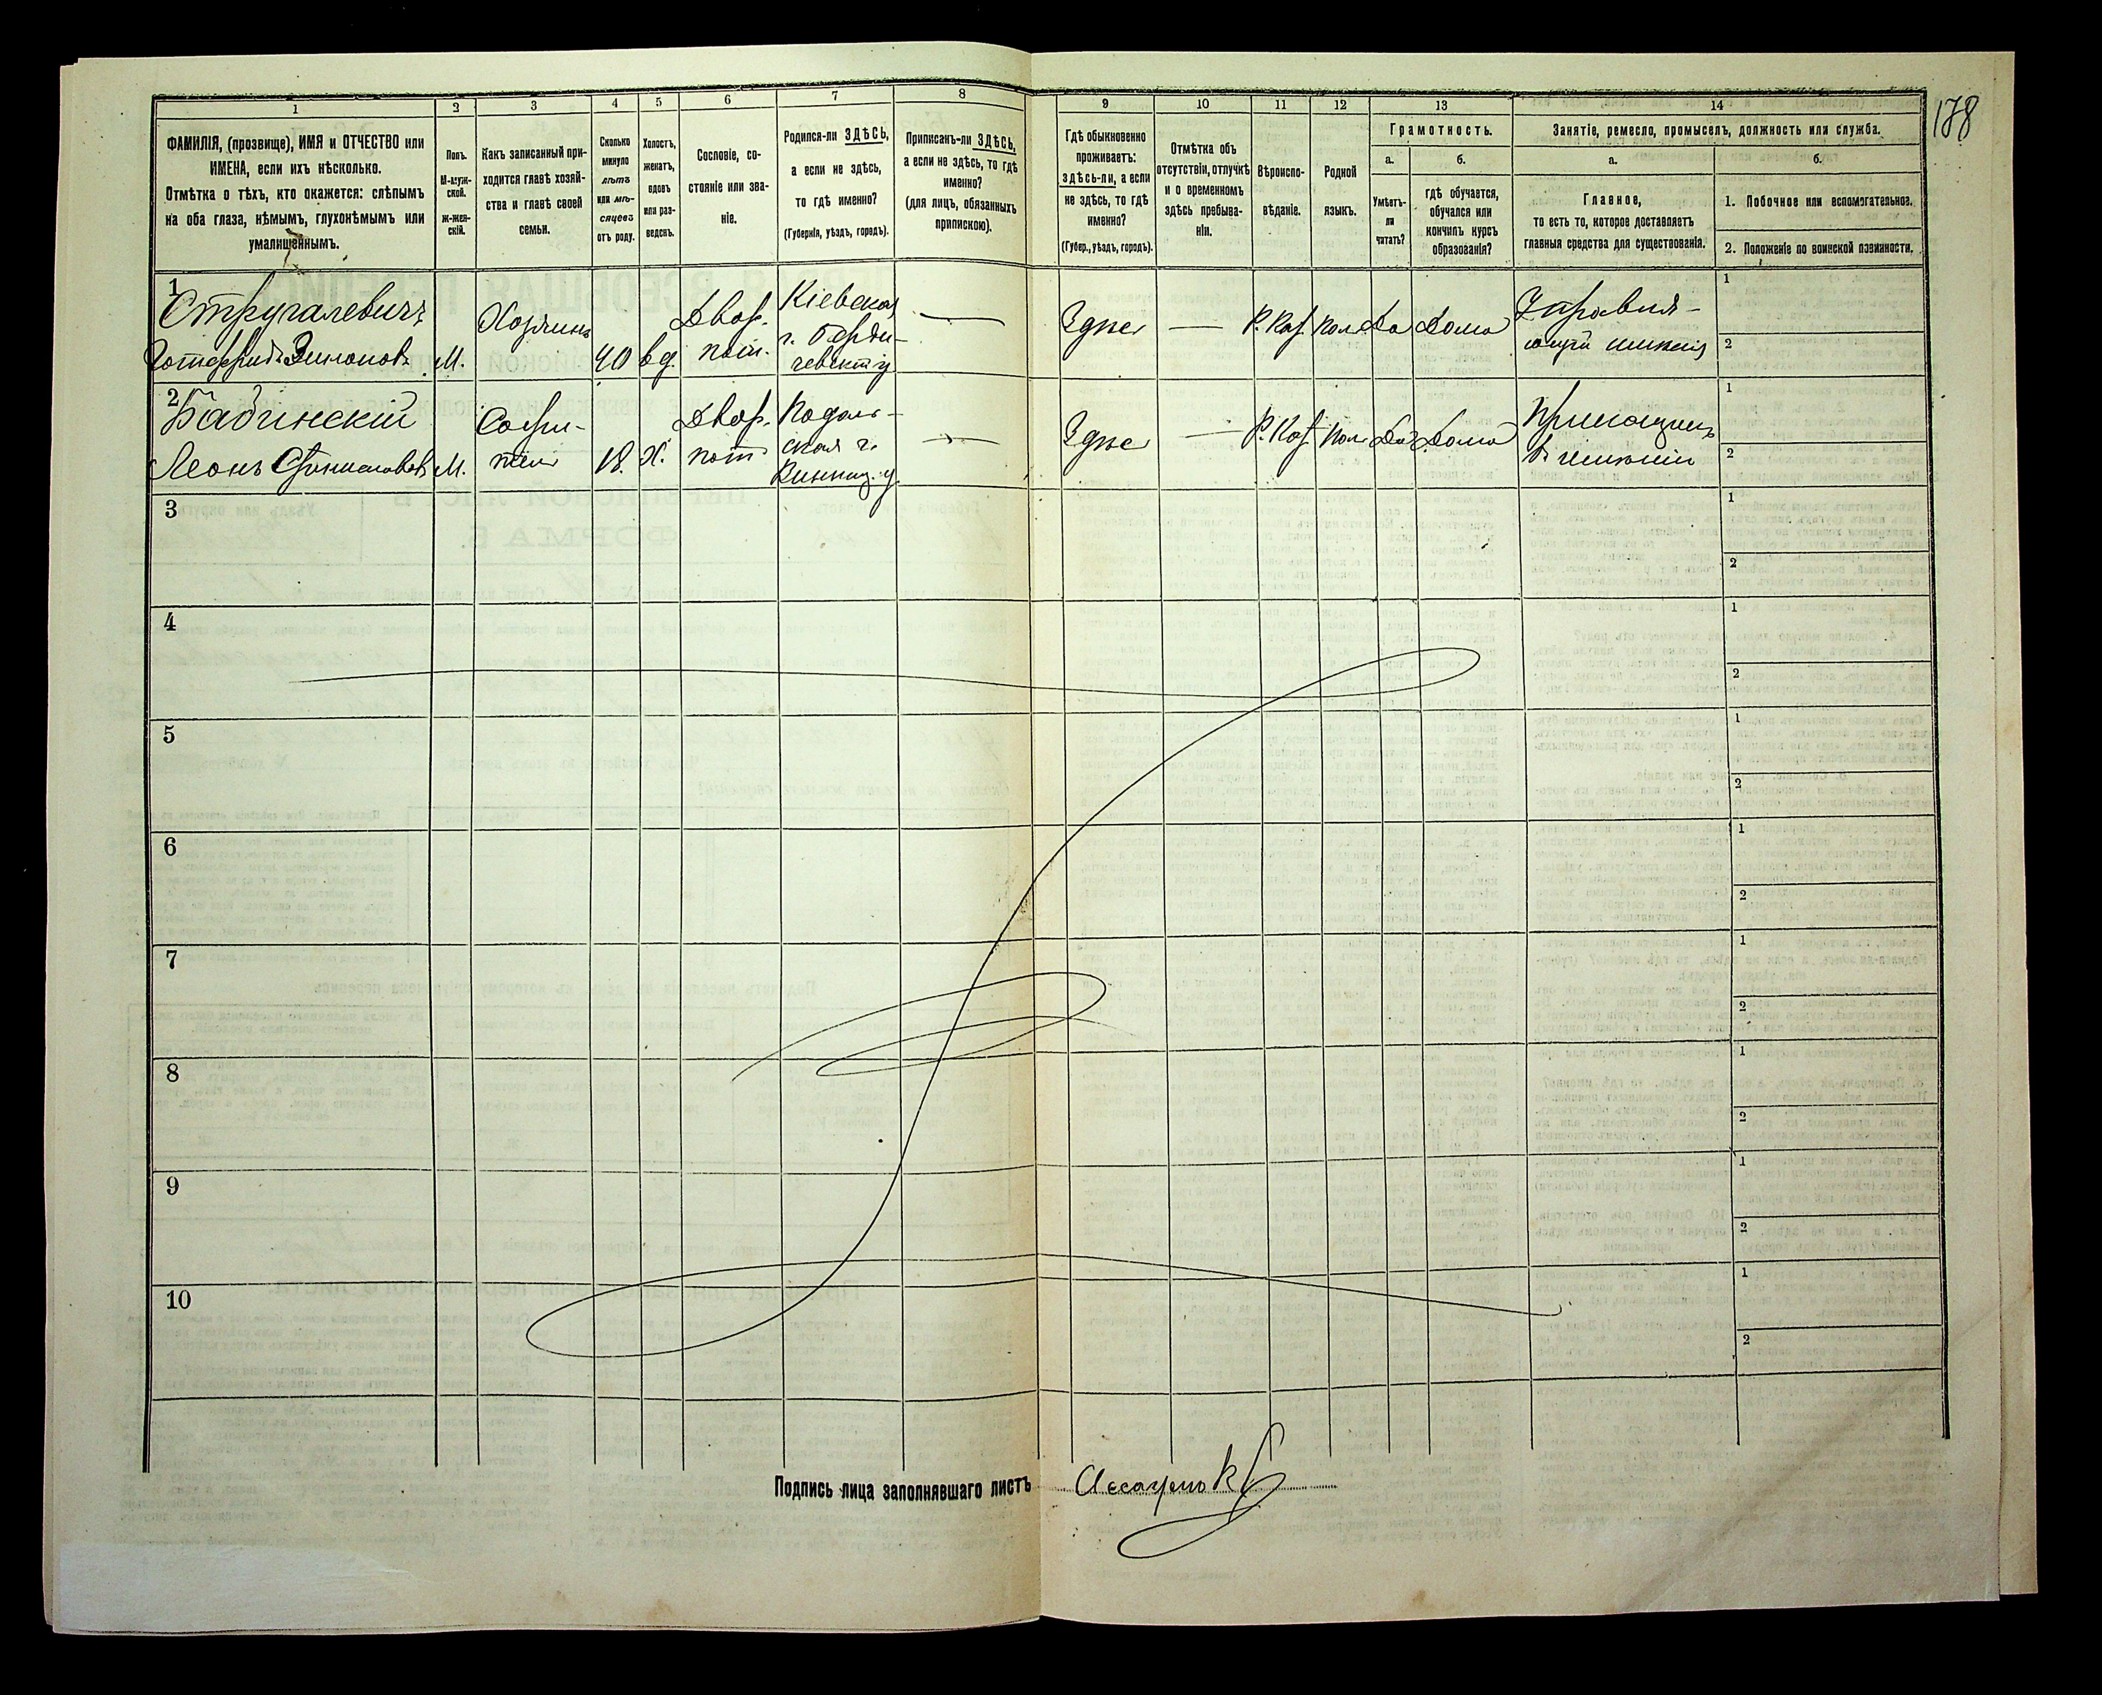 178
1 2 3 4 5 6 7 8 9 10 11 12 13 14
ФАМИЛІЯ, (прозвище), ИМЯ и ОТЧЕСТВО или
ИМЕНА, если ихъ нѣсколько.
Отмѣтка о тѣхъ, кто окажется: слѣпымъ
на оба глаза, нѣмымъ, глухонѣмымъ или
умалишённымъ.
Полъ.
М-муж-
ской.
Ж-жен-
скій.
Какъ записанный при-
ходится главѣ хозяй-
ства и главѣ своей
семьи.
Сколько
минуло
лѣтъ
или мѣ-
сяцевъ
отъ роду.
Холостъ,
женатъ,
вдовъ
или раз-
веденъ.
Сословіе, со-
стояніе или зва-
ніе.
Родился-ли ЗДѢСЬ,
а если не здѣсь,
то гдѣ именно?
(Губернія, уѣздъ, городъ).
Приписанъ-ли ЗДѢСЬ,
а если не здѣсь, то гдѣ
именно?
(для лицъ, обязанныхъ
припискою).
Гдѣ обыкновенно
проживаетъ:
здѣсь-ли, а если
не здѣсь, то гдѣ
именно?
(Губер., уѣздъ, городъ).
Отмѣтка объ
отсутствіи, отлучкѣ
и о временномъ
здѣсь пребыва-
ніи.
Вѣроиспо-
вѣданіе.
Родной
языкъ.
Грамотность.
а.
Умѣетъ-
ли
читать?
б.
гдѣ обучается,
обучался или
кончилъ курсъ
образованія?
Занятіе, ремесло, промыселъ, должность или служба.
а.
Главное,
то есть то, которое доставляетъ
главныя средства для существованія.
б.
1. Побочное или вспомогательное.
2. Положеніе по воинской повинности.
1
Стругалевичъ
М.
Хозяинъ
40
вд.
Двор.
пот.
Кіевская
г. Барди-
чевскій у
Здѣсь
Р. Кат.
Пол
Да
Дома
Управля-
ющій имѣнія
1
2
2
Бабинскій
Леонъ
М.
18.
Х.
Двор.
пот
Подоль-
ская г.
Винниц. у
Здѣсь
Р. Кат
Пол
Да
Дома
въ имѣніи
1
2
3
1
2
4
1
2
5
1
2
6
1
2
7
1
2
8
1
2
9
1
2
10
1
2
Подпись лица заполнявшаго листъ